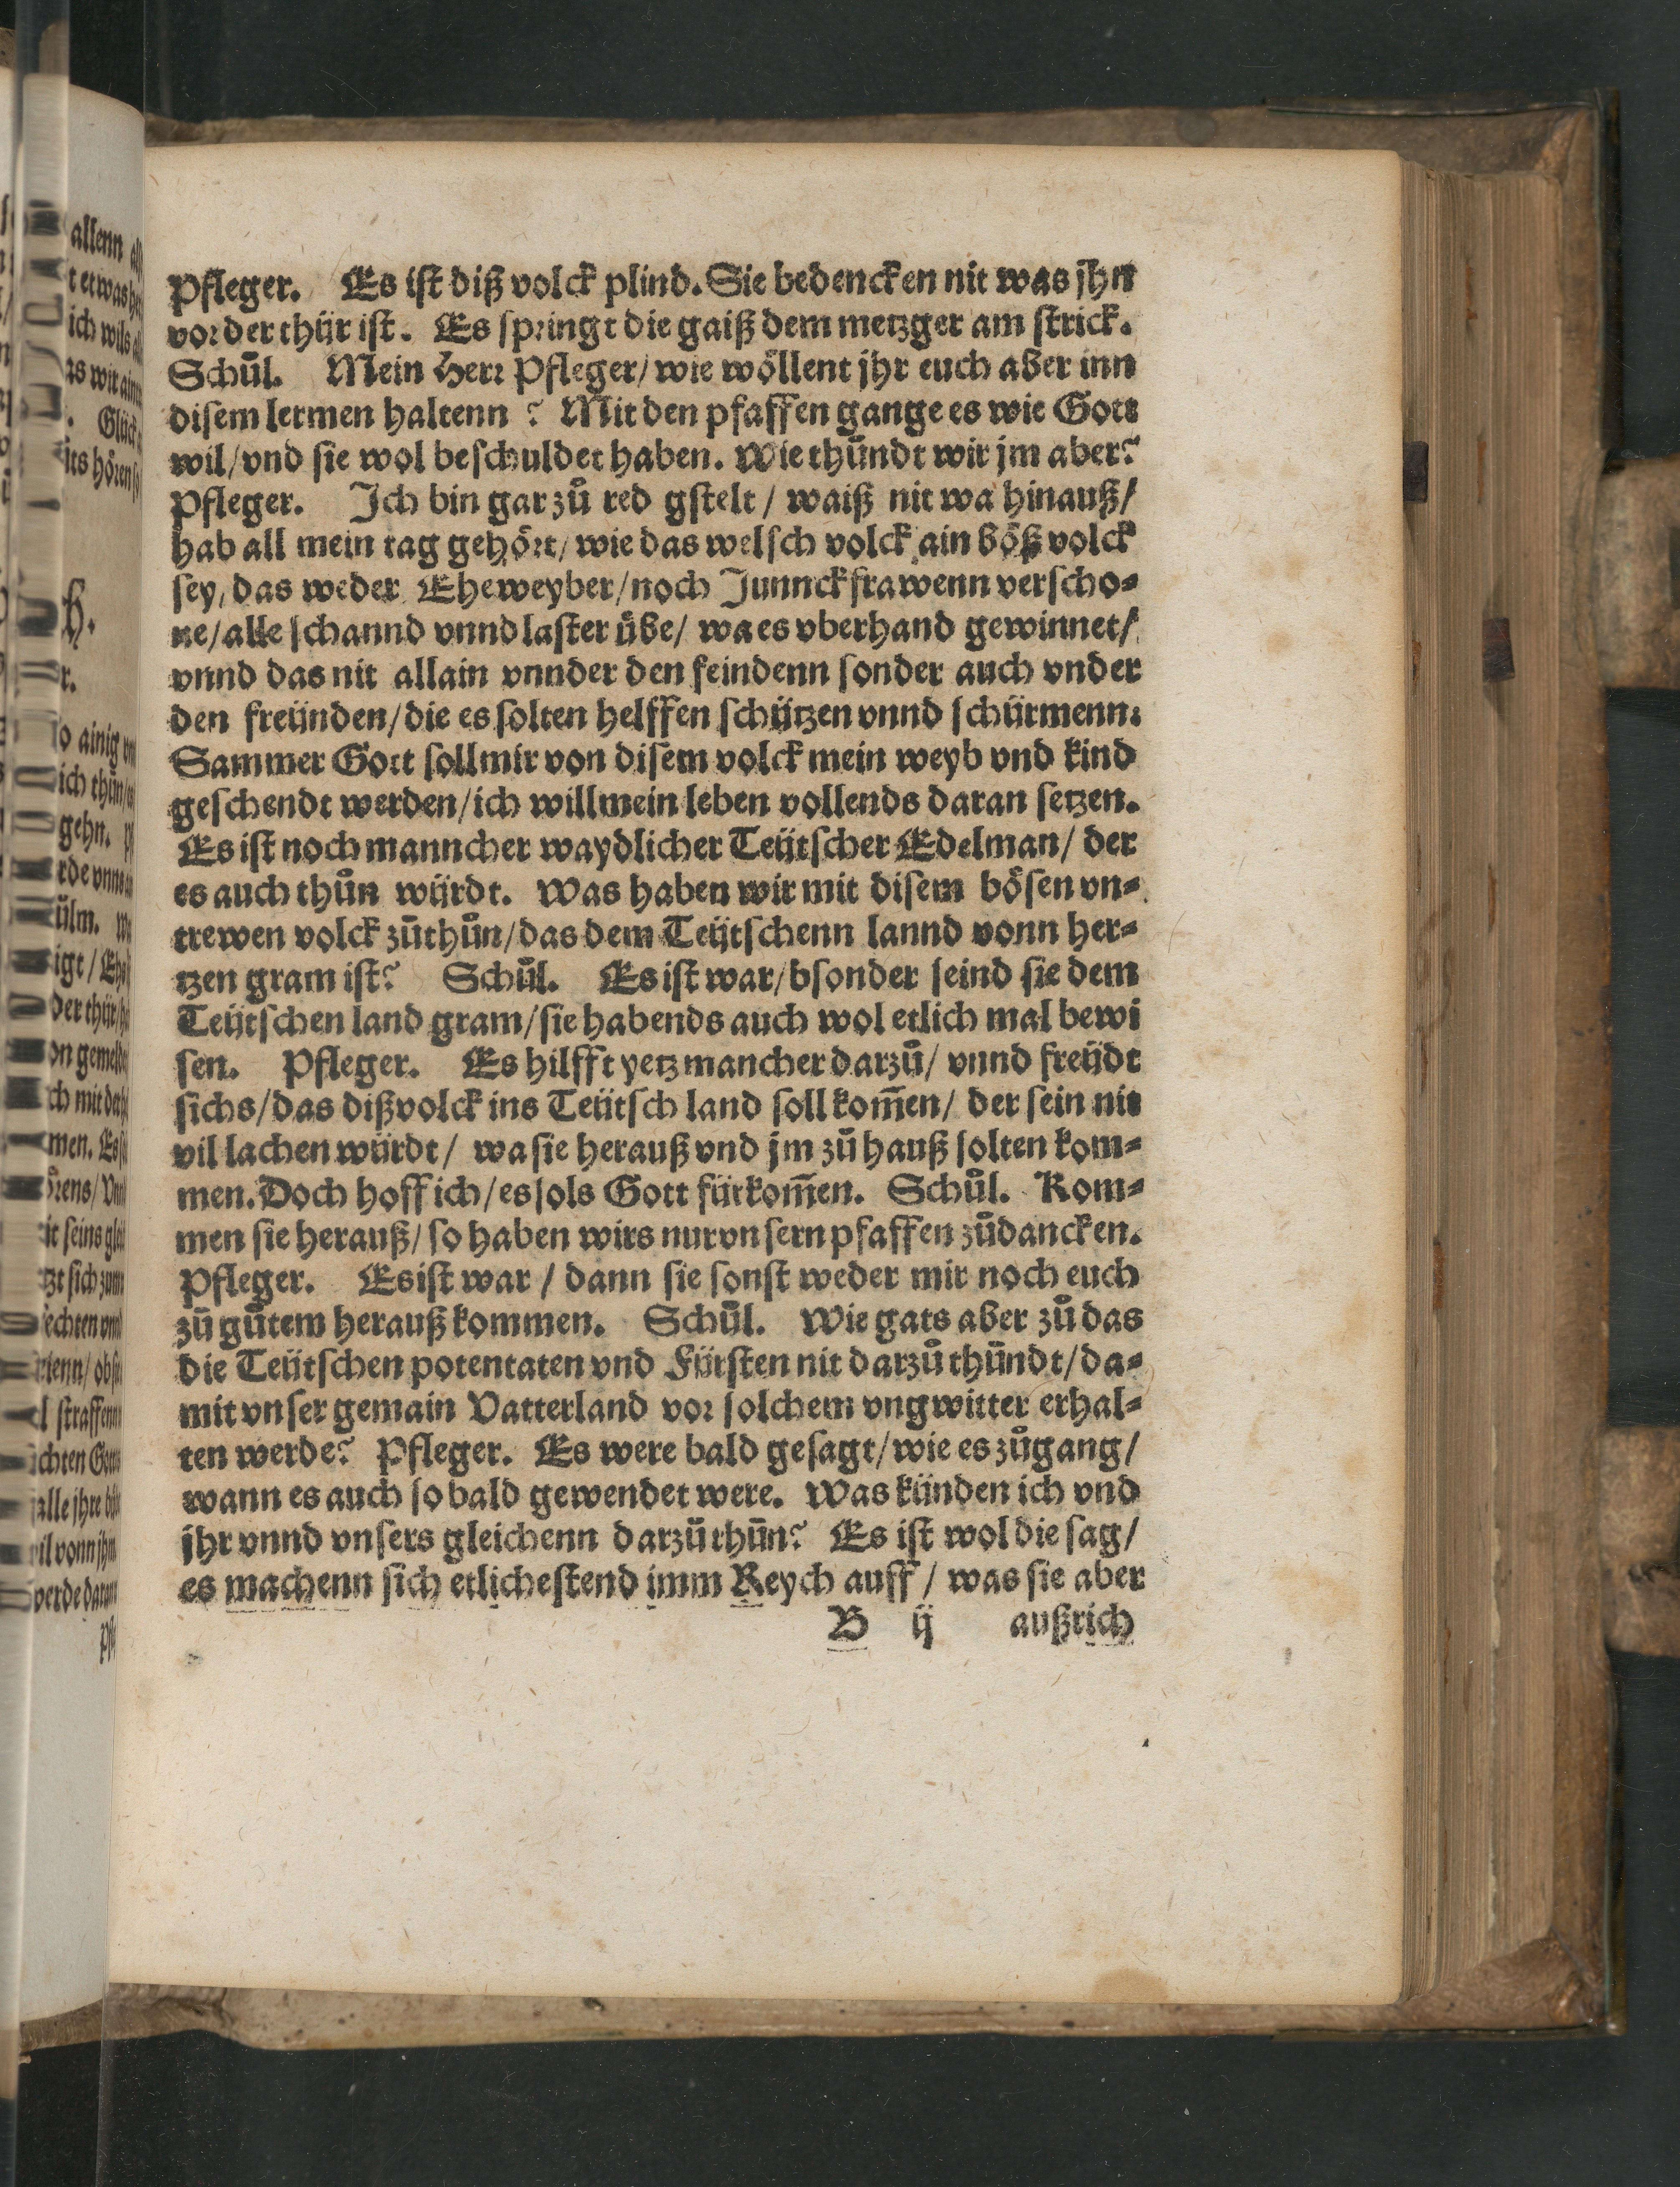 Pfleger. Es ist diß volck plind. Sie bedencken nit was jhn
vor der thür ist. Es springt die gaiß dem metzger am strick.
Schůl. Mein Herr Pfleger/ wie wöllent jhr euch aber inn
disem lermen haltenn? Mit den pfaffen gange es wie Gott
wil/ vnd sie wol beschuldet haben. Wie thůndt wir jm aber?
Pfleger. Ich bin gar zů red gstelt/ waiß nit wa hinauß/
hab all mein tag gehört/ wie das welsch volck ain böß volck
sey, das weder Eheweyber/ noch Junnckfrawenn verscho⸗
ne/ alle schannd vnnd laster übe/ wa es vberhand gewinnet/
vnnd das nit allain vnnder den feindenn sonder auch vnder
den freünden/ die es solten helffen schützen vnnd schürmenn.
Sammer Gott soll mir von disem volck mein weyb vnd kind
geschendt werden/ ich will mein leben vollends daran setzen.
Es ist noch manncher waydlicher Teütscher Edelman/ der
es auch thůn würdt. Was haben wir mit disem bösen vn⸗
trewen volck zůthůn/ das dem Teütschenn lannd vonn her⸗
tzen gram ist? Schůl. Es ist war/ bsonder seind sie dem
Teütschen land gram/ sie habends auch wol etlich mal bewi
sen. Pfleger. Es hilfft yetz mancher darzů/ vnnd freüdt
sichs/ das diß volck ins Teütsch land soll kom̃en/ der sein nit
vil lachen würdt/ wa sie herauß vnd jm zů hauß solten kom⸗
men. Doch hoff ich/ es sols Gott fürkom̃en. Schůl. Kom⸗
men sie herauß/ so haben wirs nur vnsern pfaffen zůdancken.
Pfleger. Es ist war/ dann sie sonst weder mir noch euch
zů gůtem herauß kommen. Schůl. Wie gats aber zů das
die Teütschen potentaten vnd Fürsten nit darzů thůndt/ da⸗
mit vnser gemain Vatterland vor solchem vngwitter erhal⸗
ten werde? Pfleger. Es were bald gesagt/ wie es zůgang/
wann es auch so bald gewendet were. Was künden ich vnd
jhr vnnd vnsers gleichenn darzů thůn? Es ist wol die sag/
es machenn sich etliche stend imm Reych auff/ was sie aber
B ij außrich